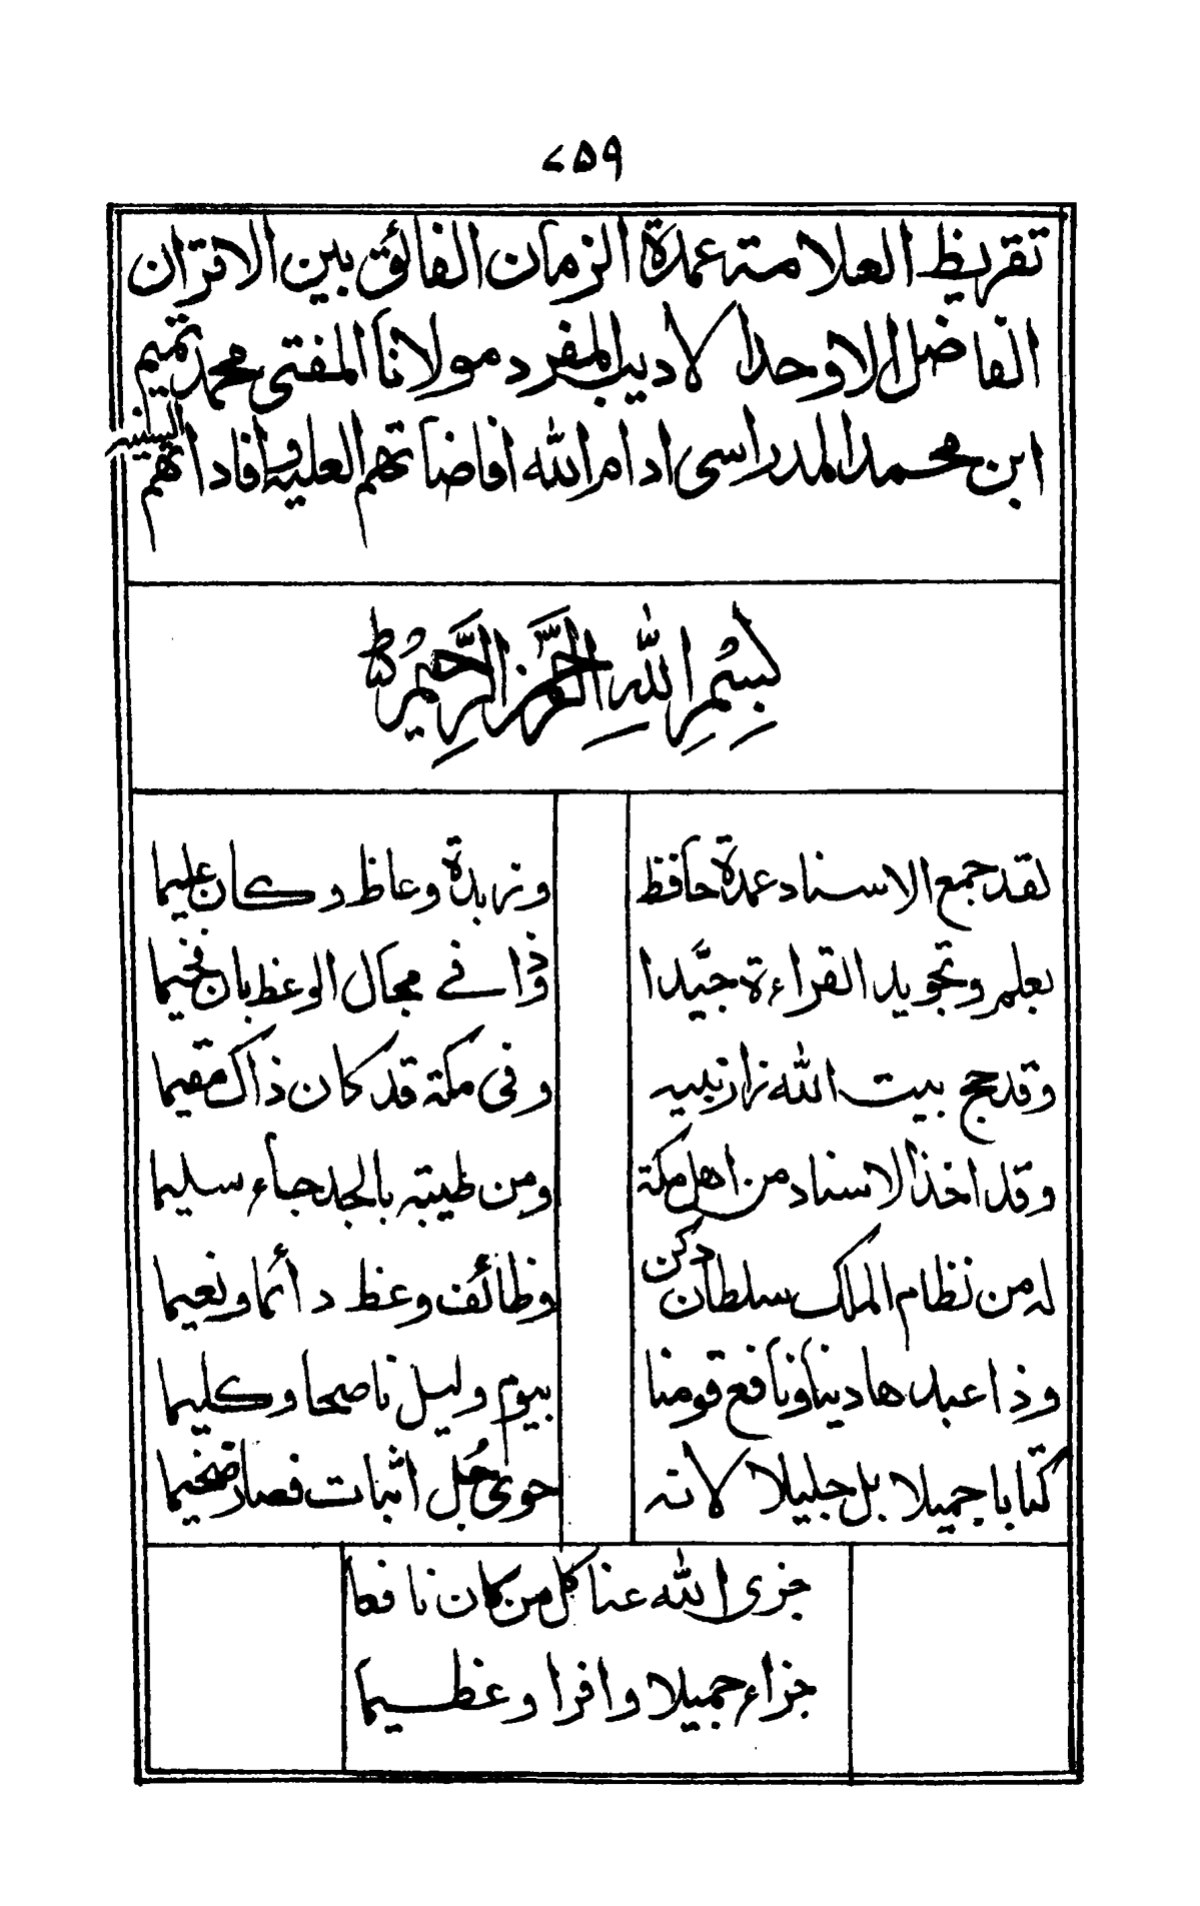 ۷۵۹
تقريظ العلامة عمدة الزمان الفائق بين الاقران
الفاضل الاوحد الاديب المفرد مولانا المفتى محمد تميم
ابن محمد المدراسى ادام الله افاضاتهم العلية وافاداتهم السنية
بِسْمِ اللهِ الرَّحْمٰنِ الرَّحِيْمِ
لقد جمع الاسناد عمدة حافظ وزبدة وعاظ وكان عليما
بعلم وتجويد القراءة جيّدا وذا في مجال الوعظ بان فخيما
وقد حج بيت الله زار نبيه وفى مكة قد كان ذاك مقيما
وقد اخذ الاسناد من اهل مكة ومن طيبته بالجد جاء سليما
له من نظام الملك سلطان دكن وظائف وعظ دائما ونعيما
وذا عبد هادينا ونافع قومنا بيوم وليل ناصحا وكليما
كتابا جميلا بل جليلا لانه حوى جُل اثبات فصار ضخيما
جزى الله عنا كل من كان نافعا
جزاء جميلا وافرا وعظيما